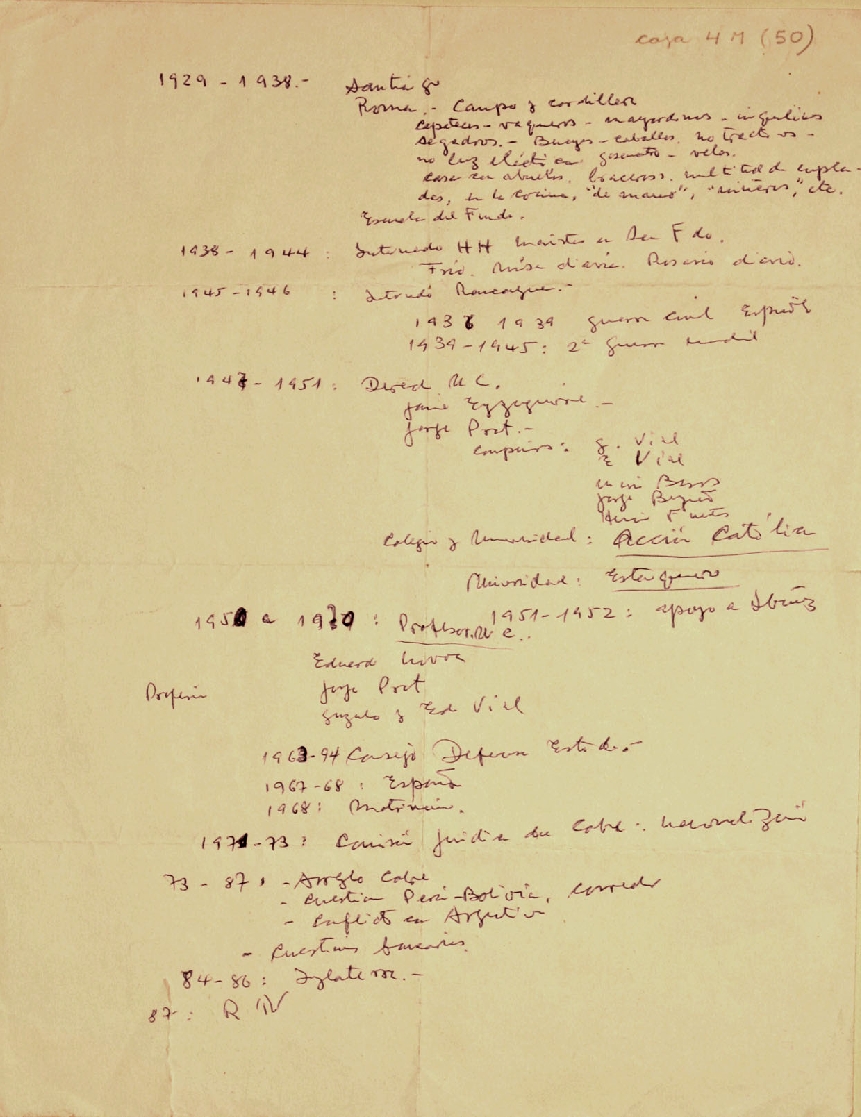 caja 4 M (50)
1929 - 1938.- Santiago
Roma.- Campo y cordillera
capataces - vaqueros - mayordomos - inquilinos
segadores.- Bueyes - caballos. no tractores -
no luz eléctrica gasómetro - velas.
casa con abuelos, braceros. multitud de emplea-
dos, en la cocina, "de mano", etc.
Escuela del Fundo.
1938 - 1944 : Internado HH Maristas en San Fdo.
Frío. Misa diaria. Rosario diario.
1945 - 1946 : Internado Rancagua.-
1936 1939 guerra civil España
1939 - 1945 : 2ª guerra mundial
1947 - 1951 : Derecho U C.
Jaime Eyzaguirre.-
Jorge Prat.-
compañeros : G. Vial
E Vial
Jorge
Colegio y Universidad : Acción Católica
Universidad : Estanquero
1951-1952 : apoyo a Ibáñez
1950 a 1970 : Profesor U C.
Eduardo Novoa
Profesión Jorge Prat
Gonzalo y Ed Vial
1963-94 Consejo Defensa Estado.-
1967-68 : España
1968 : Matrimonio.
1971-73 : Comisión jurídica del Cobre - nacionalización
73 - 87 : - Arreglo Cobre
- Cuestión Perú-Bolivia, corredor
- Conflicto con Argentina
- Cuestiones bancarias.
84-86 : Inglaterra.-
87 : R N